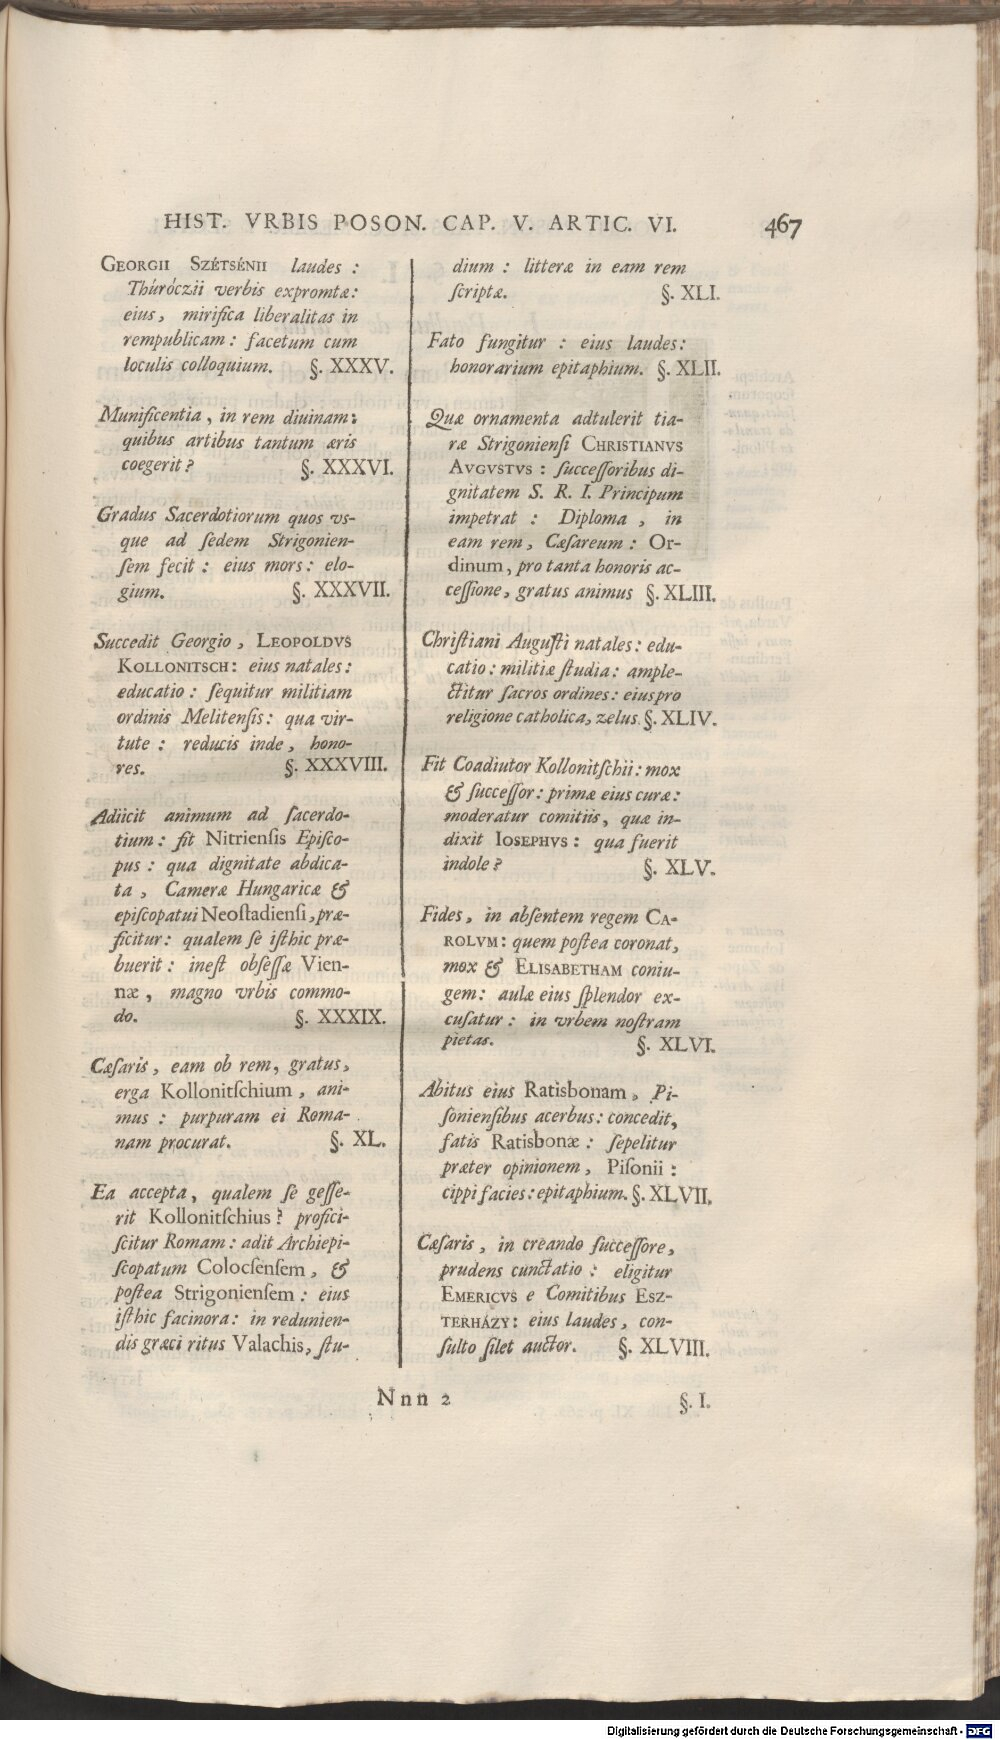 HIST. VRBIS POSON. CAP. V. ARTIC. VI. 467
GEORGII SZÉTSÉNII laudes :
Thúróczii verbis expromtæ:
eius, mirifica liberalitas in
rempublicam : facetum cum
loculis colloquium. §. XXXV.
Munificentia, in rem diuinam:
quibus artibus tantum æris
coegerit? §. XXXVI.
Gradus Sacerdotiorum quos vs-
que ad ſedem Strigonien-
ſem fecit : eius mors : elo-
gium. §. XXXVII.
Succedit Georgio, LEOPOLDVS
KOLLONITSCH: eius natales:
educatio : ſequitur militiam
ordinis Melitenſis: qua vir-
tute : reducis inde, hono-
res. §. XXXVIII.
Adiicit animum ad ſacerdo-
tium : fit Nitrienſis Epiſco-
pus : qua dignitate abdica-
ta, Cameræ Hungaricæ &
epiſcopatui Neoſtadienſi, præ-
ficitur: qualem ſe iſthic præ-
buerit : ineſt obſeſſæ Vien-
næ, magno vrbis commo-
do. §. XXXIX.
Cæſaris, eam ob rem, gratus,
erga Kollonitſchium, ani-
mus : purpuram ei Roma-
nam procurat. §. XL.
Ea accepta, qualem ſe geſſe-
rit Kollonitſchius? profici-
ſcitur Romam : adit Archiepi-
ſcopatum Colocſenſem, &
poſtea Strigonienſem : eius
iſthic facinora : in redunien-
dis græci ritus Valachis, ſtu-
dium : litteræ in eam rem
ſcriptæ. §. XLI.
Fato fungitur : eius laudes:
honorarium epitaphium. §. XLII.
Quæ ornamenta adtulerit tia-
ræ Strigonienſi CHRISTIANVS
AVGVSTVS : ſucceſſoribus di-
gnitatem S. R. I. Principum
impetrat : Diploma, in
eam rem, Cæſareum : Or-
dinum, pro tanta honoris ac-
ceſſione, gratus animus §. XLIII.
Chriſtiani Auguſti natales : edu-
catio : militiæ ſtudia : ample-
ctitur ſacros ordines : eius pro
religione catholica, zelus. §. XLIV.
Fit Coadiutor Kollonitſchii : mox
& ſucceſſor : primæ eius curæ :
moderatur comitiis, quæ in-
dixit IOSEPHVS : qua fuerit
indole? §. XLV.
Fides, in abſentem regem CA-
ROLVM: quem poſtea coronat,
mox & ELISABETHAM coniu-
gem : aulæ eius ſplendor ex-
cuſatur : in vrbem noſtram
pietas. §. XLVI.
Abitus eius Ratisbonam, Pi-
ſonienſibus acerbus : concedit,
fatis Ratisbonæ : ſepelitur
præter opinionem, Piſonii :
cippi facies : epitaphium. §. XLVII.
Cæſaris, in creando ſucceſſore,
prudens cunctatio : eligitur
EMERICVS e Comitibus ESZ-
TERHÁZY: eius laudes, con-
ſulto ſilet auctor. §. XLVIII.
Nnn 2 §. I.
Digitalisierung gefördert durch die Deutsche Forschungsgemeinschaft - DFG